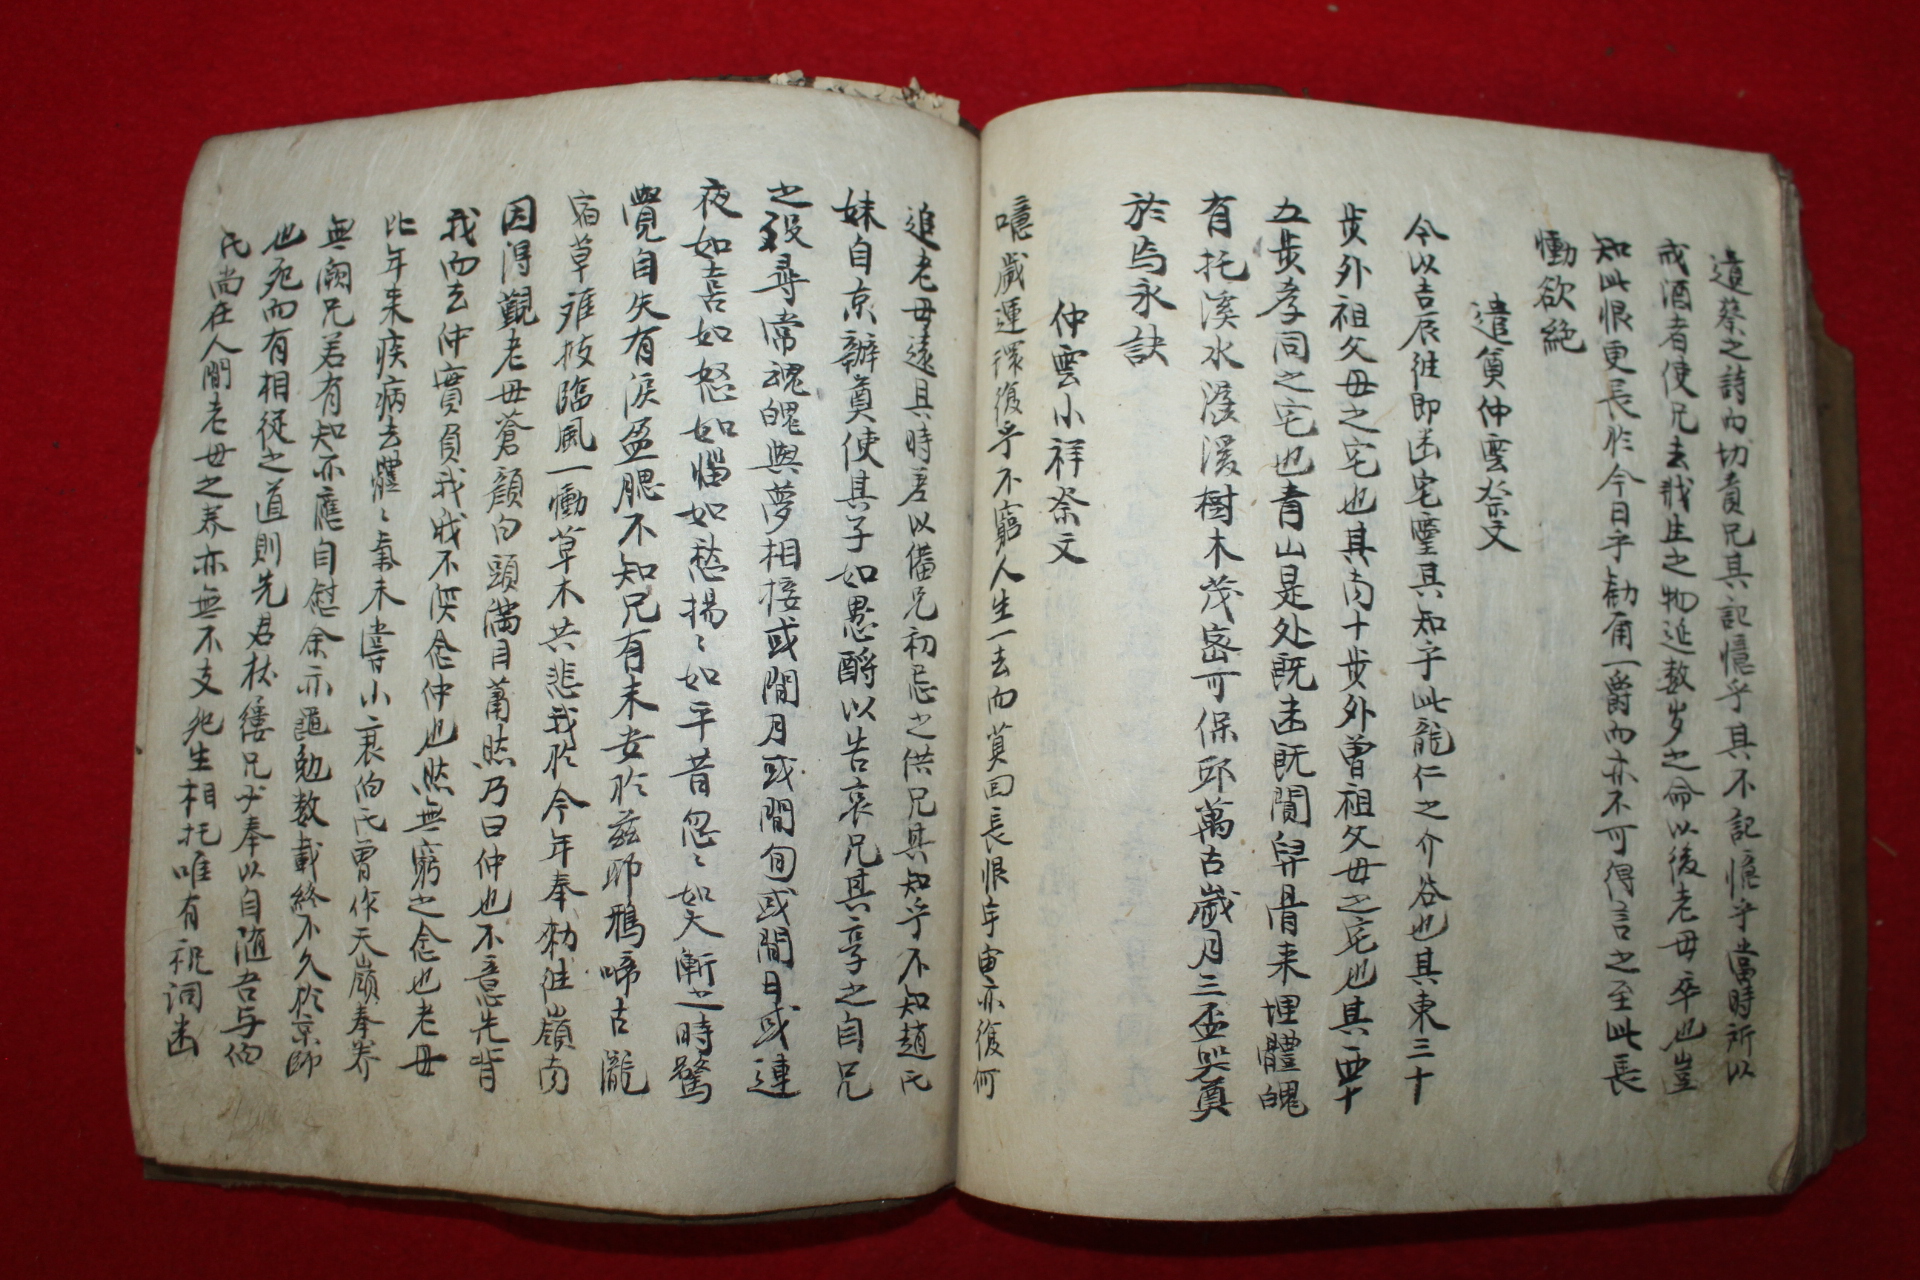 遺蔡之詩而切責兄其記憶乎其不記憶乎當時所以
戒酒者使兄去戕生之物延数岁之命以後老母卒也豈
知此恨更長於今日乎勧甭一爵而亦不可得言之至此長
慟欲絶
遣奠仲雲祭文
今以吉辰徃即幽宅靈其知乎此龍仁之介谷也其東三十
步外祖父母之宅也其南十步外曾祖父母之宅也其西十
五步孝同之宅也青山是处既幽既閴舁骨来埋體魄
有托溪水潺湲樹木茂密可保邱萬古歲月三盃哭奠
於焉永訣
仲雲小祥祭文
噫歲運環復乎不窮人生一去而莫回長恨年寅亦復何
追老母遠具時羞以備兄初忌之供兄其知乎不知趙氏
妹自京辦奠使其子如愚酹以告哀兄其享之自兄
之歿尋常魂魄與夢相接或間月或間旬或間日或連
夜如喜如怒如惱如愁揚〻如平昔忽〻如大漸之時驚
覺自失有淚盈腮不知兄有未安於兹耶鴉啼古隴
宿草難披臨風一慟草木共悲我於今年奉勑徃嶺南
因得覲老母蒼顔白頭滿目蕭然乃曰仲也不意先背
我而去仲實負我我不須念仲也然無窮之念也老母
比年来疾病去體〻氣未嘗小衰伯氏曾作天嶺奉养
無闕兄若有知亦應自慰余亦黽勉数載終不久於京師
也死而有相從之道則先君杖屨兄必奉以自随吾与伯
氏尚在人間老母之养亦無不支死生相托唯有祝詞幽